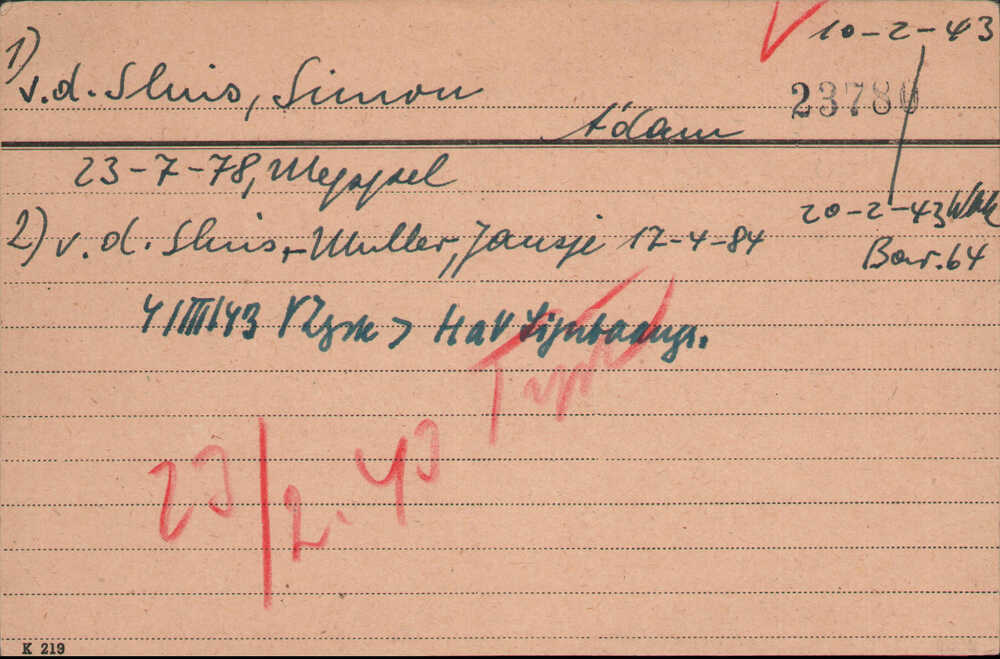 10-2-43
1) v.d. Sluis, Simon
23780
A'dam
23-7-78, Meppel
20-2-43 Wbk
2) v.d. Sluis-Muller, Jansje 17-4-84
Bar. 64
4/III/43 > HaV
Trpt
23/2.43
K 219